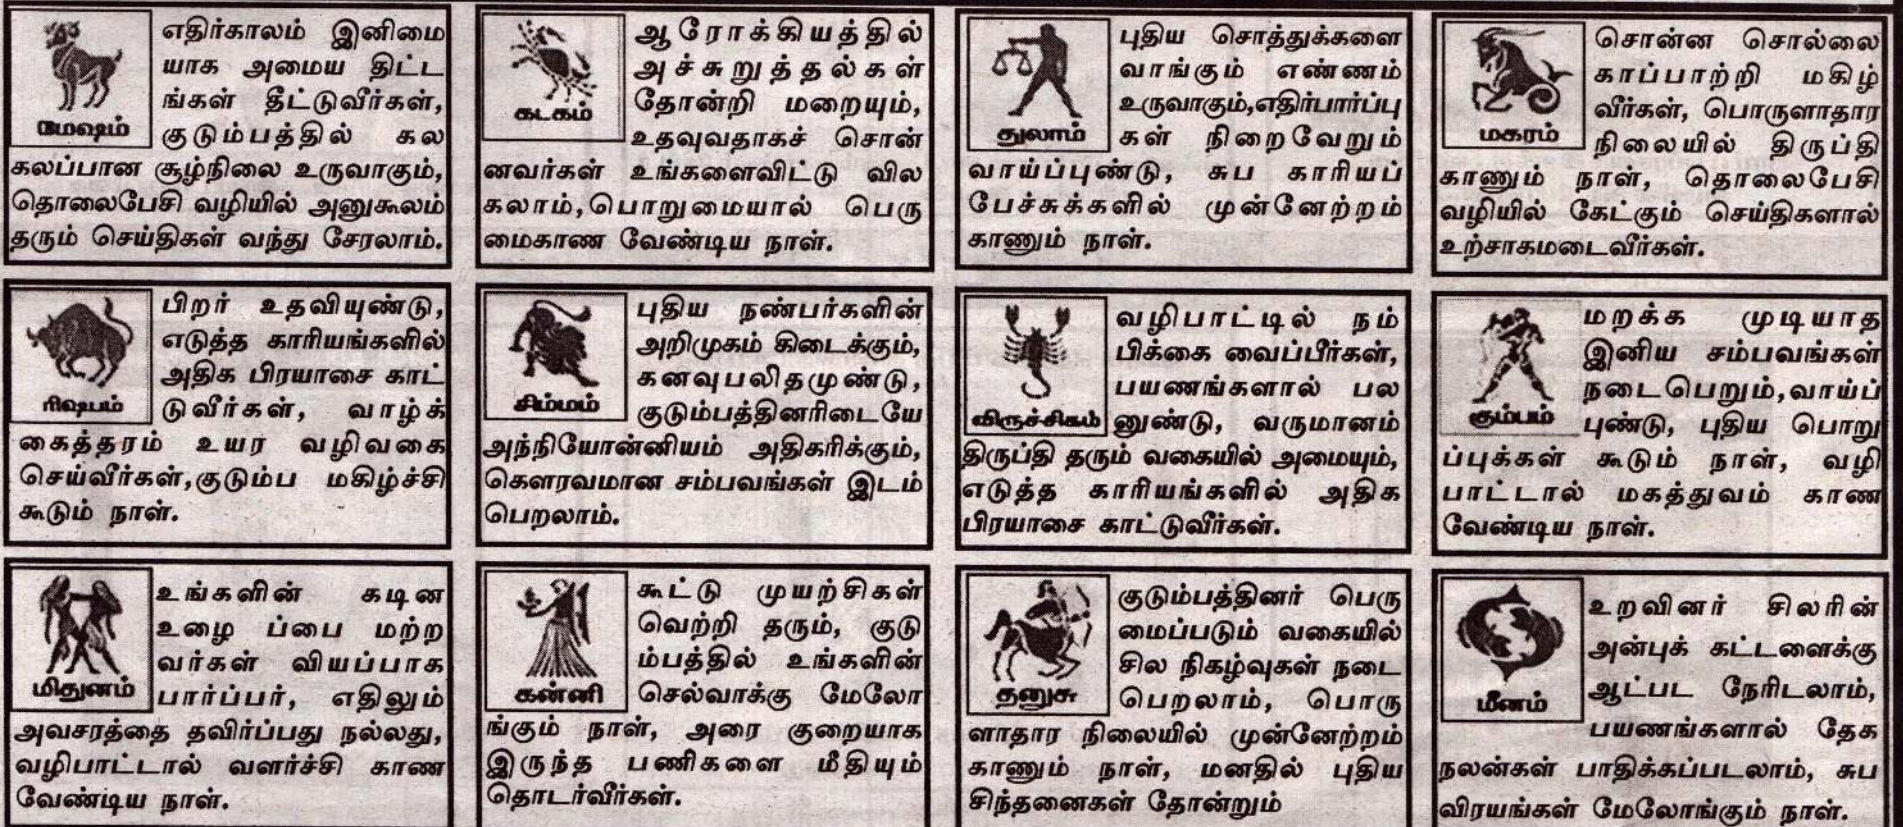 எதிர்காலம் இனிமை
யாக அமைய திட்ட
ங்கள் தீட்டுவீர்கள்,
மேஷம்
குடும்பத்தில் கல
கலப்பான சூழ்நிலை உருவாகும்,
தொலைபேசி வழியில் அனுகூலம்
தரும் செய்திகள் வந்து சேரலாம்.
பிறர் உதவியுண்டு,
எடுத்த காரியங்களில்
அதிக பிரயாசை காட்
ரிஷபம்
டுவீர்கள், வாழ்க்
கைத்தரம் உயர வழிவகை
செய்வீர்கள்,குடும்ப மகிழ்ச்சி
கூடும் நாள்.
உங்களின் கடின
உழை ப்பை மற்ற
வர்கள் வியப்பாக
மிதுனம்
பார்ப்பர், எதிலும்
அவசரத்தை தவிர்ப்பது நல்லது,
வழிபாட்டால் வளர்ச்சி காண
வேண்டிய நாள்.
ஆரோக்கியத்தில்
அச்சுறுத்தல்கள்
தோன்றி மறையும்,
கடகம்
உதவுவதாகச் சொன்
னவர்கள் உங்களைவிட்டு வில
கலாம்,பொறுமையால் பெரு
மைகாண வேண்டிய நாள்.
புதிய நண்பர்களின்
அறிமுகம் கிடைக்கும்,
கனவுபலிதமுண்டு,
சிம்மம்
குடும்பத்தினரிடையே
அந்நியோன்னியம் அதிகரிக்கும்,
கௌரவமான சம்பவங்கள் இடம்
பெறலாம்.
கூட்டு முயற்சிகள்
வெற்றி தரும், குடு
ம்பத்தில் உங்களின்
கன்னி
செல்வாக்கு மேலோ
ங்கும் நாள், அரை குறையாக
இருந்த பணிகளை மீதியும்
தொடர்வீர்கள்.
புதிய சொத்துக்களை
வாங்கும் எண்ணம்
உருவாகும்,எதிர்பார்ப்பு
துலாம்
கள் நிறைவேறும்
வாய்ப்புண்டு, சுப காரியப்
பேச்சுக்களில் முன்னேற்றம்
காணும் நாள்.
வழிபாட்டில் நம்
பிக்கை வைப்பீர்கள்,
பயணங்களால் பல
விருச்சிகம்
னுண்டு, வருமானம்
திருப்தி தரும் வகையில் அமையும்,
எடுத்த காரியங்களில் அதிக
பிரயாசை காட்டுவீர்கள்.
குடும்பத்தினர் பெரு
மைப்படும் வகையில்
சில நிகழ்வுகள் நடை
தனுசு
பெறலாம், பொரு
ளாதார நிலையில் முன்னேற்றம்
காணும் நாள், மனதில் புதிய
சிந்தனைகள் தோன்றும்
சொன்ன சொல்லை
காப்பாற்றி மகிழ்
வீர்கள், பொருளாதார
மகரம்
நிலையில் திருப்தி
காணும் நாள், தொலைபேசி
வழியில் கேட்கும் செய்திகளால்
உற்சாகமடைவீர்கள்.
மறக்க முடியாத
இனிய சம்பவங்கள்
நடைபெறும்,வாய்ப்
கும்பம்
புண்டு, புதிய பொறு
ப்புக்கள் கூடும் நாள், வழி
பாட்டால் மகத்துவம் காண
வேண்டிய நாள்.
உறவினர் சிலரின்
அன்புக் கட்டளைக்கு
ஆட்பட நேரிடலாம்,
மீனம்
பயணங்களால் தேக
நலன்கள் பாதிக்கப்படலாம், சுப
விரயங்கள் மேலோங்கும் நாள்.